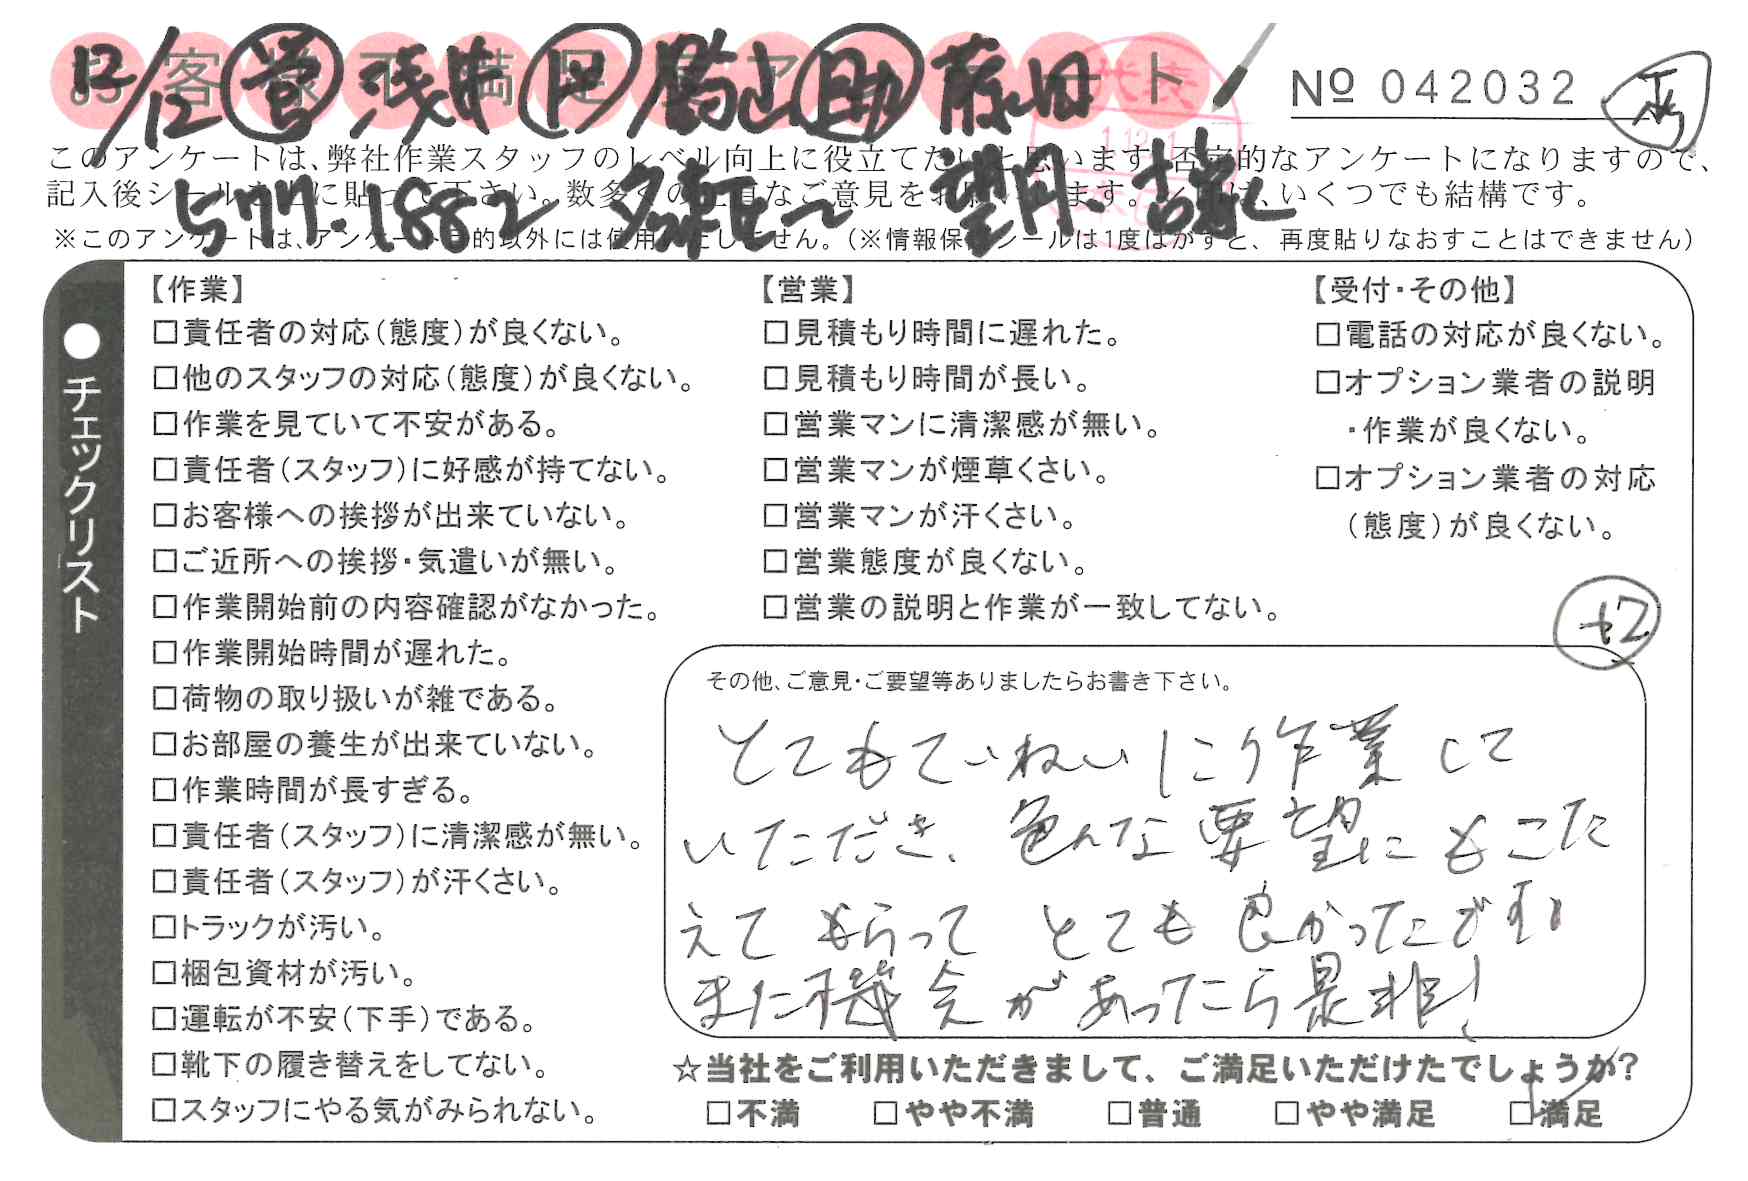 お客様不満足度アンケート
12/12 営 浅井 円 勝山 助 藤田
No 042032
このアンケートは、弊社作業スタッフのレベル向上に役立てたいと思います。否定的なアンケートになりますので、
記入後シールを上に貼って下さい。数多くの正直なご意見をお願いします。シ印は、いくつでも結構です。
577・1882 望月
※このアンケートは、アンケート目的以外には使用いたしません。(※情報保護シールは1度はがすと、再度貼りなおすことはできません)
代表
●チェックリスト
【作業】
□責任者の対応(態度)が良くない。
□他のスタッフの対応(態度)が良くない。
□作業を見ていて不安がある。
□責任者(スタッフ)に好感が持てない。
□お客様への挨拶が出来ていない。
□ご近所への挨拶・気遣いが無い。
□作業開始前の内容確認がなかった。
□作業開始時間が遅れた。
□荷物の取り扱いが雑である。
□お部屋の養生が出来ていない。
□作業時間が長すぎる。
□責任者(スタッフ)に清潔感が無い。
□責任者(スタッフ)が汗くさい。
□トラックが汚い。
□梱包資材が汚い。
□運転が不安(下手)である。
□靴下の履き替えをしてない。
□スタッフにやる気がみられない。
【営業】
□見積もり時間に遅れた。
□見積もり時間が長い。
□営業マンに清潔感が無い。
□営業マンが煙草くさい。
□営業マンが汗くさい。
□営業態度が良くない。
□営業の説明と作業が一致してない。
【受付・その他】
□電話の対応が良くない。
□オプション業者の説明
・作業が良くない。
□オプション業者の対応
(態度)が良くない。
+2
その他、ご意見・ご要望等ありましたらお書き下さい。
とてもていねいに作業して
いただき、色んな要望にもこた
えてもらってとても良かったです。
また機会があったら是非!
☆当社をご利用いただきまして、ご満足いただけたでしょうか?
□不満 □やや不満 □普通 □やや満足 □満足